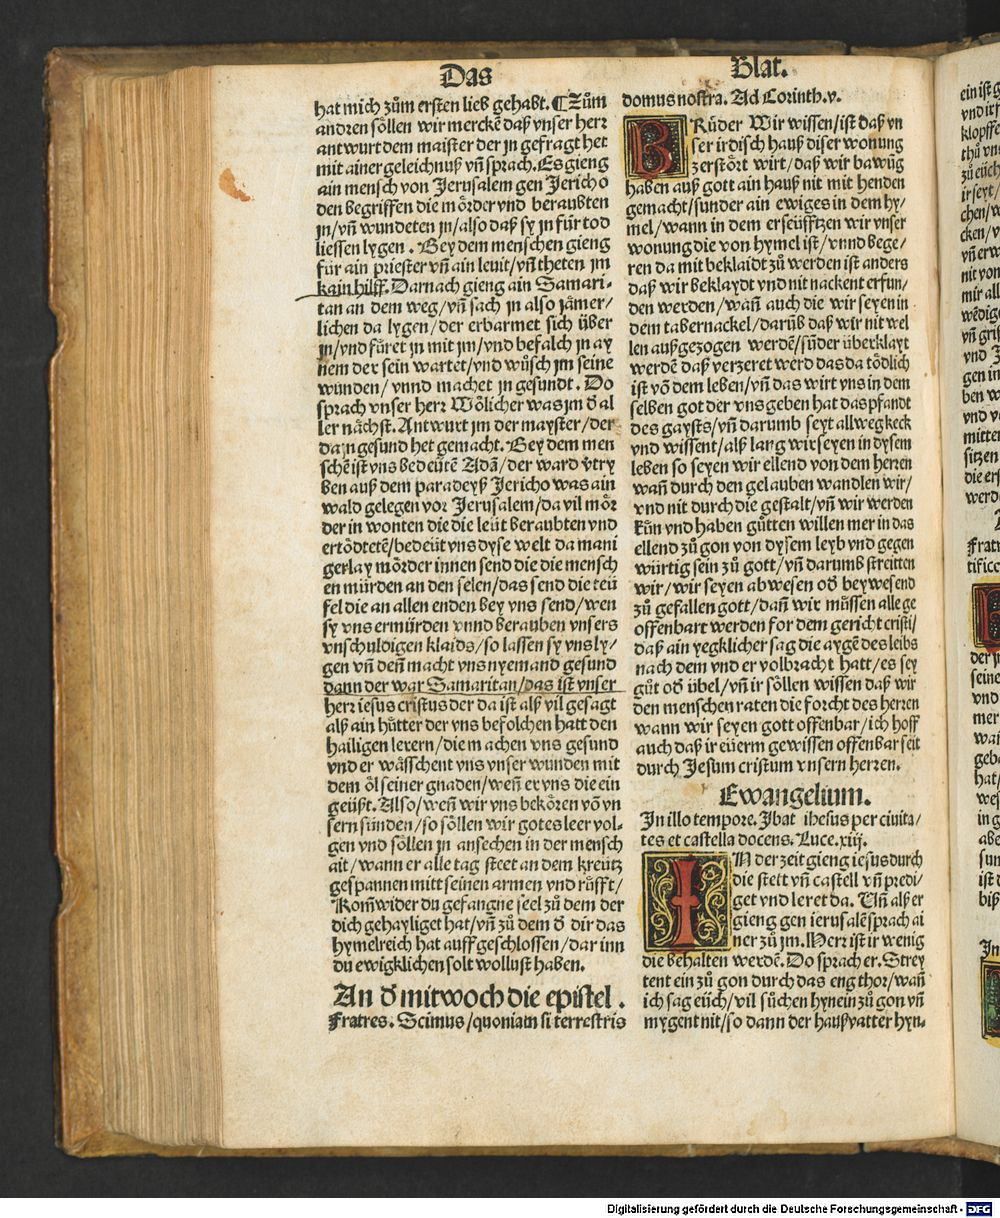 Das
hat mich zům ersten lieb gehabt. ¶ Zům
andren söllen wir merckē daß vnser herr
antwurt dem maister der jn gefragt het
mit ainer geleichnuß vn̄ sprach. Es gieng
ain mensch von Jerusalem gen Jericho
den begriffen die mörder vnd beraubten
jn/vn̄ wundeten jn/also daß sy jn für tod
liessen lygen. Bey dem menschen gieng
für ain priester vn̄ ain leuit/vn̄ theten jm
kain hilff. Darnach gieng ain Samari-
tan an dem weg/vn̄ sach jn also jämer/
lichen da lygen/der erbarmet sich über
jn/vnd füret jn mit jm/vnd befalch jn ay
nem der sein wartet/vnd wůsch jm seine
wunden/vnnd machet jn gesundt. Do
sprach vnser herr Wölicher was jm d̄ al
ler nächst. Antwurt jm der mayster/der
da jn gesund het gemacht. Bey dem men
schē ist vns bedeütē Adā/der ward v̈try
ben auß dem paradeyß Jericho was ain
wald gelegen vor Jerusalem/da vil mör
der in wonten die die leüt beraubten vnd
ertödtetē/bedeüt vns dyse welt da mani
gerlay mörder innen send die die mensch
en mürden an den selen/das send die teü
fel die an allen enden bey vns send/wen
sy vns ermürden vnnd berauben vnsers
vnschuldigen klaids/so lassen sy vns ly/
gen vn̄ den̄ macht vns nyemand gesund
dann der war Samaritan/das ist vnser
herr iesus cristus der da ist alß vil gesagt
alß ain hütter der vns befolchen hatt den
hailigen lerern/die machen vns gesund
vnd er wässchent vns vnser wunden mit
dem öl seiner gnaden/wen̄ er vns die ein
geüßt. Also/wen̄ wir vns bekören vō vn
sern sünden/so söllen wir gotes leer vol-
gen vnd söllen jn ansechen in der mensch
ait/wann er alle tag steet an dem kreütz
gespannen mitt seinen armen vnd růfft/
Kom̄ wider du gefangne seel zů dem der
dich gehayliget hat/vn̄ zů dem d̄ dir das
hymelreich hat auff geschlossen/dar inn
du ewigklichen solt wollust haben.
An d̄ mitwoch die epistel.
Fratres. Scimus/quoniam si terrestris
Blat.
domus nostra. Ad Corinth. v.
BRůder Wir wissen/ist daß vn
ser irdisch hauß diser wonung
zerstört wirt/daß wir bawūg
haben auß gott ain hauß nit mit henden
gemacht/sunder ain ewiges in dem hy/
mel/wann in dem erseüfftzen wir vnser
wonung die von hymel ist/vnnd bege/
ren da mit beklaidt zů werden ist anders
daß wir beklaydt vnd nit nackent erfun/
den werden/wan̄ auch die wir seyen in
dem tabernackel/darūb daß wir nit wel
len außgezogen werdē/sūder überklayt
werdē daß verzeret werd das da tödlich
ist vō dem leben/vn̄ das wirt vns in dem
selben got der vns geben hat das pfandt
des gaysts/vn̄ darumb seyt allweg keck
vnd wissent/alß lang wir seyen in dysem
leben so seyen wir ellend von dem herren
wan̄ durch den gelauben wandlen wir/
vnd nit durch die gestalt/vn̄ wir werden
kün vnd haben gůtten willen mer in das
ellend zů gon von dysem leyb vnd gegen
würtig sein zů gott/vn̄ darumb streitten
wir/wir seyen abwesen od̄ bey wesend
zů gefallen gott/dan̄ wir müssen alle ge
offenbart werden for dem gericht cristi/
daß ain yegklicher sag die aygē des leibs
nach dem vnd er volbracht hatt/es sey
gůt od̄ übel/vn̄ ir söllen wissen daß wir
den menschen raten die forcht des herren
wann wir seyen gott offenbar/ich hoff
auch daß ir eüerm gewissen offenbar seit
durch Jesum cristum vnsern herren.
Ewangelium.
In illo tempore. Ibat ihesus per ciuita/
tes et castella docens. Luce. xiij.
IN der zeit gieng iesus durch
die stett vn̄ castell vn̄ predi-
get vnd leret da. Vn̄ alß er
gieng gen ierusalē sprach ai
ner zů jm. Herr ist ir wenig
die behalten werdē. Do sprach er. Strey
tent ein zů gon durch das eng thor/wan̄
ich sag eüch/vil sůchen hynein zů gon vn̄
mygent nit/so dann der haußvatter hyn-
Digitalisierung gefördert durch die Deutsche Forschungsgemeinschaft - DFG